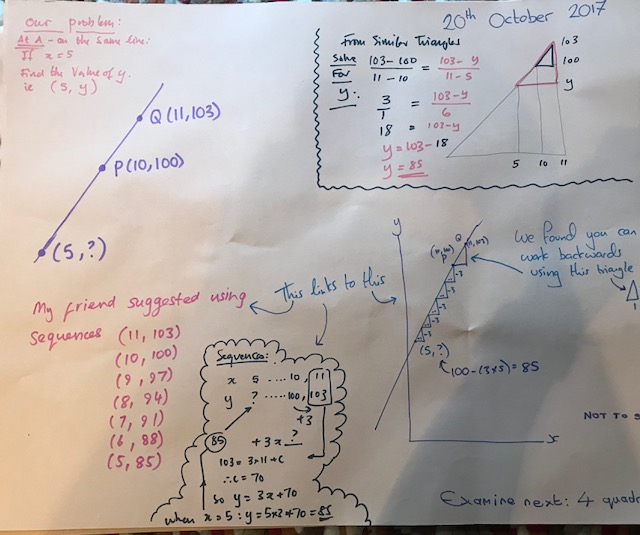 Our problem:
At A - on the same line:
If x = 5
Find the value of y.
ie (5, y)
Q (11,103)
P(10,100)
(5,?)
20th October 2017
From Similar Triangles
Solve
For
y:
103-100 / 11-10 = 103-y / 11-5
3/1 = 103-y / 6
18 = 103-y
y = 103-18
y = 85
103
100
y
5 10 11
My friend suggested using
Sequences (11, 103)
(10, 100)
(9, 97)
(8, 94)
(7, 91)
(6, 88)
(5, 85)
This links to this
Sequences:
x 5 ....10, 11
y ? .....100, 103
+3
85
+3x ?
103 = 3x11+c
∴c = 70
so y = 3x+70
when x = 5 : y = 5x3+70 = 85
y
Q (11,103)
(10,100)
P
-3
-3
-3
-3
-3
(5,?)
100-(3x5) = 85
x
We found you can
work backwards
using this triangle
1
NOT TO S
Examine next: 4 quadr